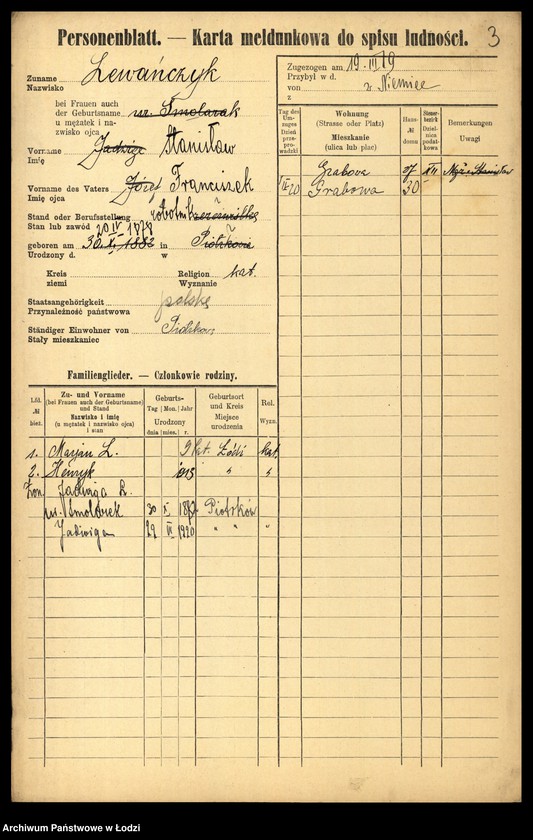 Personenblatt. — Karta meldunkowa do spisu ludności.
3
Zuname Lewańczyk
Nazwisko
bei Frauen auch
der Geburtsname ur. Smolarek
u mężatek i na-
zwisko ojca
Vorname Jadwiga Stanisław
Imię
Vorname des Vaters Józef Franciszek
Imię ojca
Stand oder Berufsstellung robotnik
Stan lub zawód 20 IV 1878
geboren am 30 XI 1882 in Piotrków
Urodzony d. w
Kreis
ziemi
Religion kat.
Wyznanie
Staatsangehörigkeit polska
Przynależność państwowa
Ständiger Einwohner von Piotrków
Stały mieszkaniec
Zugezogen am 19 III 19
Przybył w d.
von z Niemiec
z
Tag des Um-
zuges
Dzień
prze-
prowadzki
Wohnung
(Strasse oder Platz)
Mieszkanie
(ulica lub plac)
Haus-
№
domu
Steuer-
bezirk
Dziel-
nica
podat-
kowa
Bemerkungen
Uwagi
Grabowa 37 XII Mąż: Stanisław
Grabowa 30
Familienglieder. — Członkowie rodziny.
Lfd.
№
bież.
Zu- und Vorname
(bei Frauen auch der Geburtsname)
und Stand
Nazwisko i imię
(u mężatek i nazwisko ojca)
i stan
Geburts-
Tag Mon. Jahr
Urodzony
dnia mies. r.
Geburtsort
und Kreis
Miejsce
urodzenia
Rel.
Wyzn.
1. Marjan L. 9 lat Łódź kat.
2. Henryk 1913 " "
żona Jadwiga L.
ur. Smolarek 30 X Piotrków
Jadwiga 29 VI 1920 " " "
Archiwum Państwowe w Łodzi